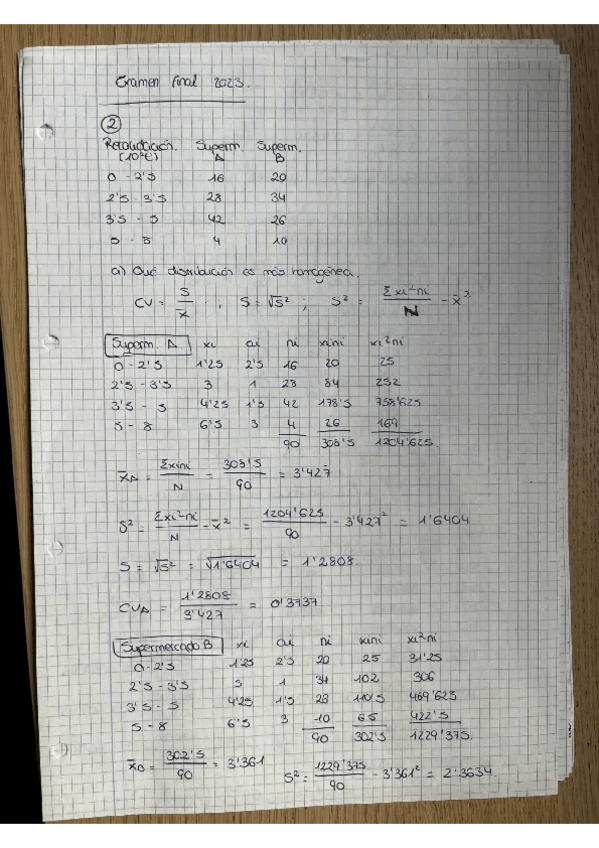 Examen Final 2023.
②
Recaudación. Superm. Superm.
(10³€) A B
0 - 2'5 16 20
2'5 - 3'5 28 34
3'5 - 5 42 26
5 - 8 4 10
a) Qué distribución es más homogénea.
CV = S/x̄ ; S = √S² ; S² = Σxi²ni/N - x̄²
Superm. A xi ai ni xini xi²ni
0 - 2'5 1'25 2'5 16 20 25
2'5 - 3'5 3 1 28 84 252
3'5 - 5 4'25 1'5 42 178'5 758'625
5 - 8 6'5 3 4 26 169
90 308'5 1204'625
x̄A = Σxini/N = 308'5/90 = 3'427
S² = Σxi²ni/N - x̄² = 1204'625/90 - 3'427² = 1'6404
S = √S² = √1'6404 = 1'2808
CVA = 1'2808/3'427 = 0'3737
Supermercado B xi ai ni xini xi²ni
0 - 2'5 1'25 2'5 20 25 31'25
2'5 - 3'5 3 1 34 102 306
3'5 - 5 4'25 1'5 26 110'5 469'625
5 - 8 6'5 3 10 65 422'5
90 302'5 1229'375
x̄B = 302'5/90 = 3'361 S² = 1229'375/90 - 3'361² = 2'3634